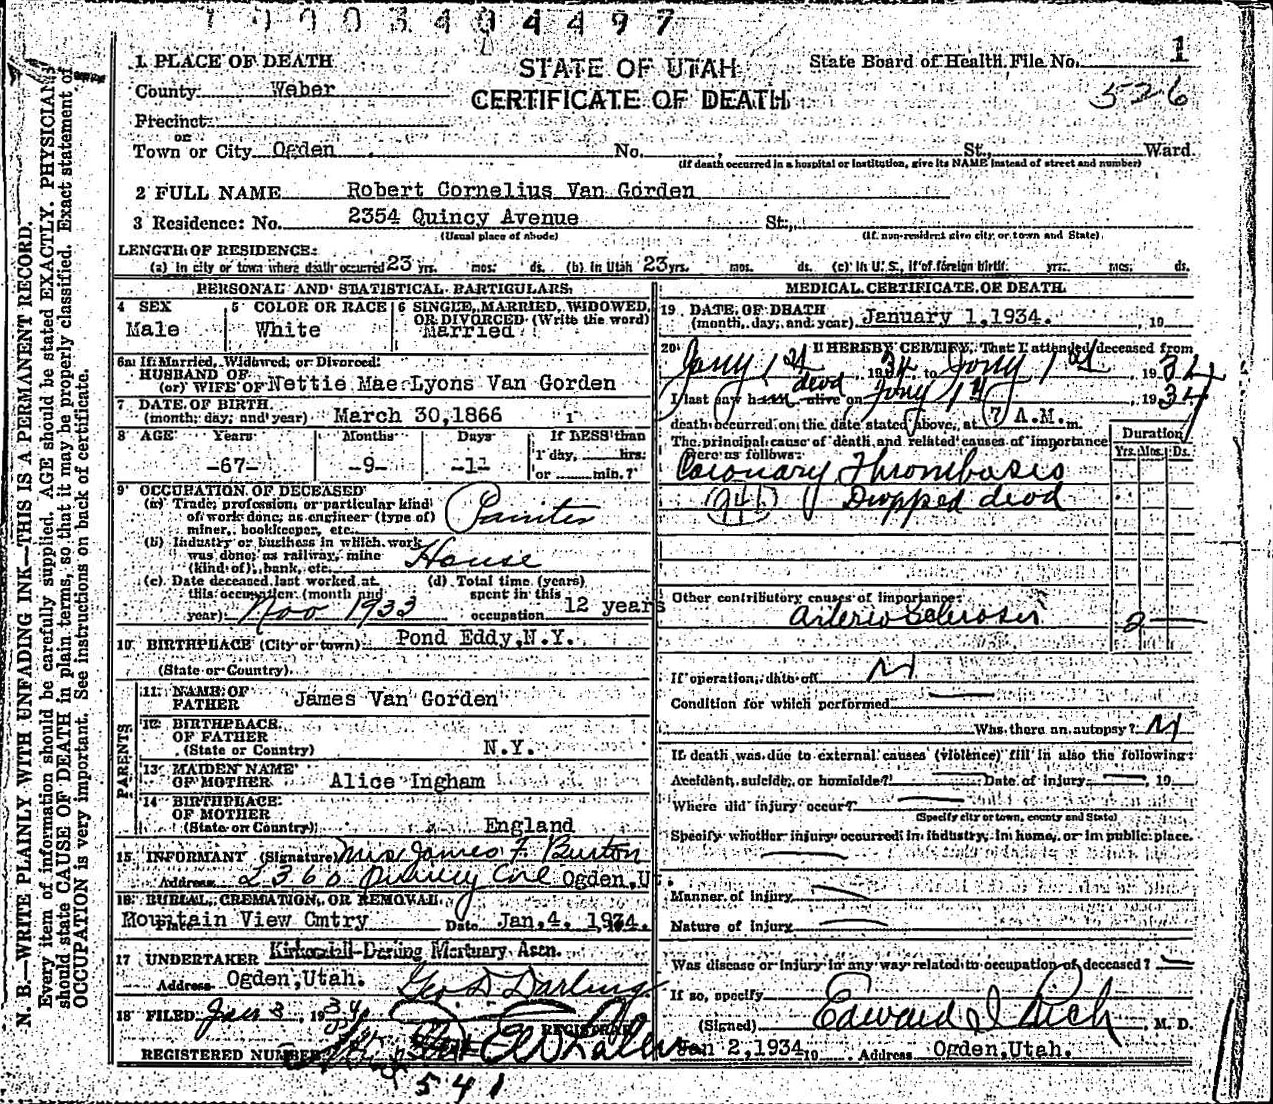 1 0 0 0 3 4 0 4 4 9 7
1 PLACE OF DEATH
STATE OF UTAH
State Board of Health File No. 1
County Weber
CERTIFICATE OF DEATH
526
Precinct
or
Town or City Ogden No. St., Ward.
(If death occurred in a hospital or institution, give its NAME instead of street and number)
2 FULL NAME Robert Cornelius Van Gorden
3 Residence: No. 2354 Quincy Avenue St.,
(Usual place of abode) (If non-resident give city or town and State)
LENGTH OF RESIDENCE:
(a) In city or town where death occurred 23 yrs. mos. ds. (b) In Utah 23 yrs. mos. ds. (c) In U. S., if of foreign birth. yrs. mos. ds.
PERSONAL AND STATISTICAL PARTICULARS
4 SEX
Male
5 COLOR OR RACE
White
6 SINGLE, MARRIED, WIDOWED, OR DIVORCED (Write the word)
Married
6a If Married, Widowed, or Divorced:
HUSBAND OF
(or) WIFE OF Nettie Mae Lyons Van Gorden
7 DATE OF BIRTH
(month, day, and year) March 30,1866
8 AGE Years Months Days If LESS than
1 day, hrs.
-67- -9- -1- or min.?
9 OCCUPATION OF DECEASED
(a) Trade, profession, or particular kind
of work done, as engineer (type of)
miner, bookkeeper, etc. Painter
(b) Industry or business in which work
was done, as railway, mine
(kind of), bank, etc. House
(c) Date deceased last worked at
this occupation (month and
year) Nov 1933
(d) Total time (years)
spent in this
occupation 12 years
10 BIRTHPLACE (City or town) Pond Eddy,N.Y.
(State or Country)
PARENTS
11 NAME OF
FATHER James Van Gorden
12 BIRTHPLACE
OF FATHER
(State or Country) N.Y.
13 MAIDEN NAME
OF MOTHER Alice Ingham
14 BIRTHPLACE
OF MOTHER
(State or Country) England
15 INFORMANT (Signature) Mrs James F. Burton
Address 2360 Quincy Ave Ogden,U.
16 BURIAL, CREMATION, OR REMOVAL
Place Mountain View Cmtry Date Jan.4, 1934.
17 UNDERTAKER Kirkendall-Darling Mortuary Assn.
Address Ogden,Utah. Geo D Darling
18 FILED Jan 3, 1934
REGISTRAR
REGISTERED NUMBER
541
MEDICAL CERTIFICATE OF DEATH
19 DATE OF DEATH
(month, day, and year) January 1,1934. , 19
20 I HEREBY CERTIFY, That I attended deceased from
Jany 1st, 1934 to Jany 1st, 1934
I last saw him dead alive on Jany 1st, 1934
death occurred on the date stated above, at 7 A.M. m.
The principal cause of death and related causes of importance
were as follows:
Duration
Yrs. Mos. Ds.
Coronary Thrombosis
94b Dropped dead
Other contributory causes of importance:
Arterio Sclerosis 2
If operation, date of
Condition for which performed
Was there an autopsy?
If death was due to external causes (violence) fill in also the following:
Accident, suicide, or homicide? Date of injury , 19
Where did injury occur?
(Specify city or town, county and State)
Specify whether injury occurred in industry, in home, or in public place.
Manner of injury
Nature of injury
Was disease or injury in any way related to occupation of deceased?
If so, specify
(Signed) Edward I Rich , M. D.
Jan 2,1934 19 Address Ogden,Utah.
N. B.—WRITE PLAINLY WITH UNFADING INK—THIS IS A PERMANENT RECORD.
Every item of information should be carefully supplied. AGE should be stated EXACTLY. PHYSICIANS
should state CAUSE OF DEATH in plain terms, so that it may be properly classified. Exact statement of
OCCUPATION is very important. See instructions on back of certificate.